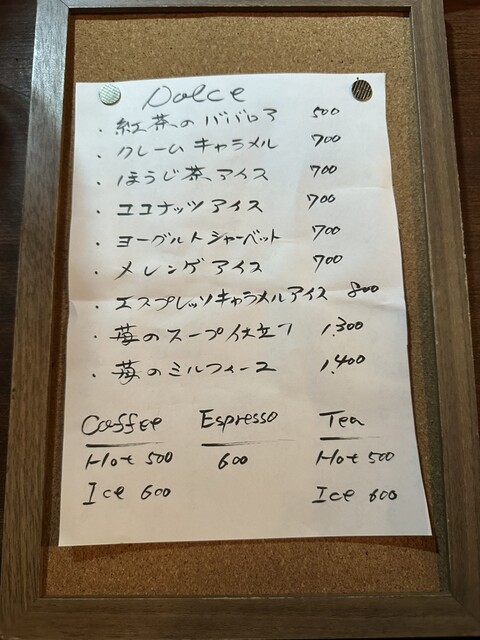 Dolce
・紅茶のババロア 500
・クレームキャラメル 700
・ほうじ茶アイス 700
・ココナッツアイス 700
・ヨーグルトシャーベット 700
・メレンゲアイス 700
・エスプレッソキャラメルアイス 800
・苺のスープ仕立て 1,300
・苺のミルフィーユ 1,400
Coffee Espresso Tea
Hot 500 600 Hot 500
Ice 600 Ice 600